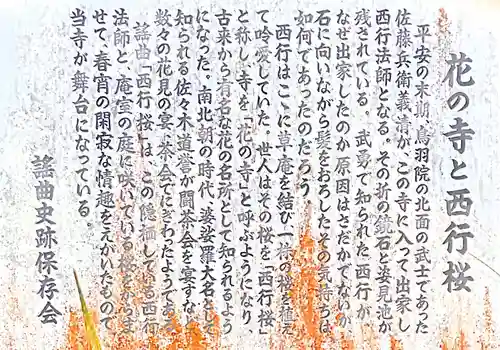 花の寺と西行桜
平安の末期、鳥羽院の北面の武士であった
佐藤兵衛義清が、この寺に入って出家し
西行法師となる。その折の鏡石と姿見池が
残されている。武勇で知られた西行が、
なぜ出家したのか原因はさだかでないが、
石に向いながら髪をおろしたその気持ちは
如何であったのだろう。
西行はここに草庵を結び一株の桜を植え
て吟愛していた。世人はその桜を「西行桜」
と称し、寺を「花の寺」と呼ぶようになり、
古来から有名な花の名所として知られるよう
になった。南北朝の時代、婆娑羅大名として
知られる佐々木道誉が闘茶会を宴すなど
数々の花見の宴、茶会でにぎわったようである。
謡曲「西行桜」は、この隠栖している西行
法師と、庵室の庭に咲いている桜をからま
せて、春宵の閑寂な情趣をえがいたもので
当寺が舞台になっている。
謡曲史跡保存会